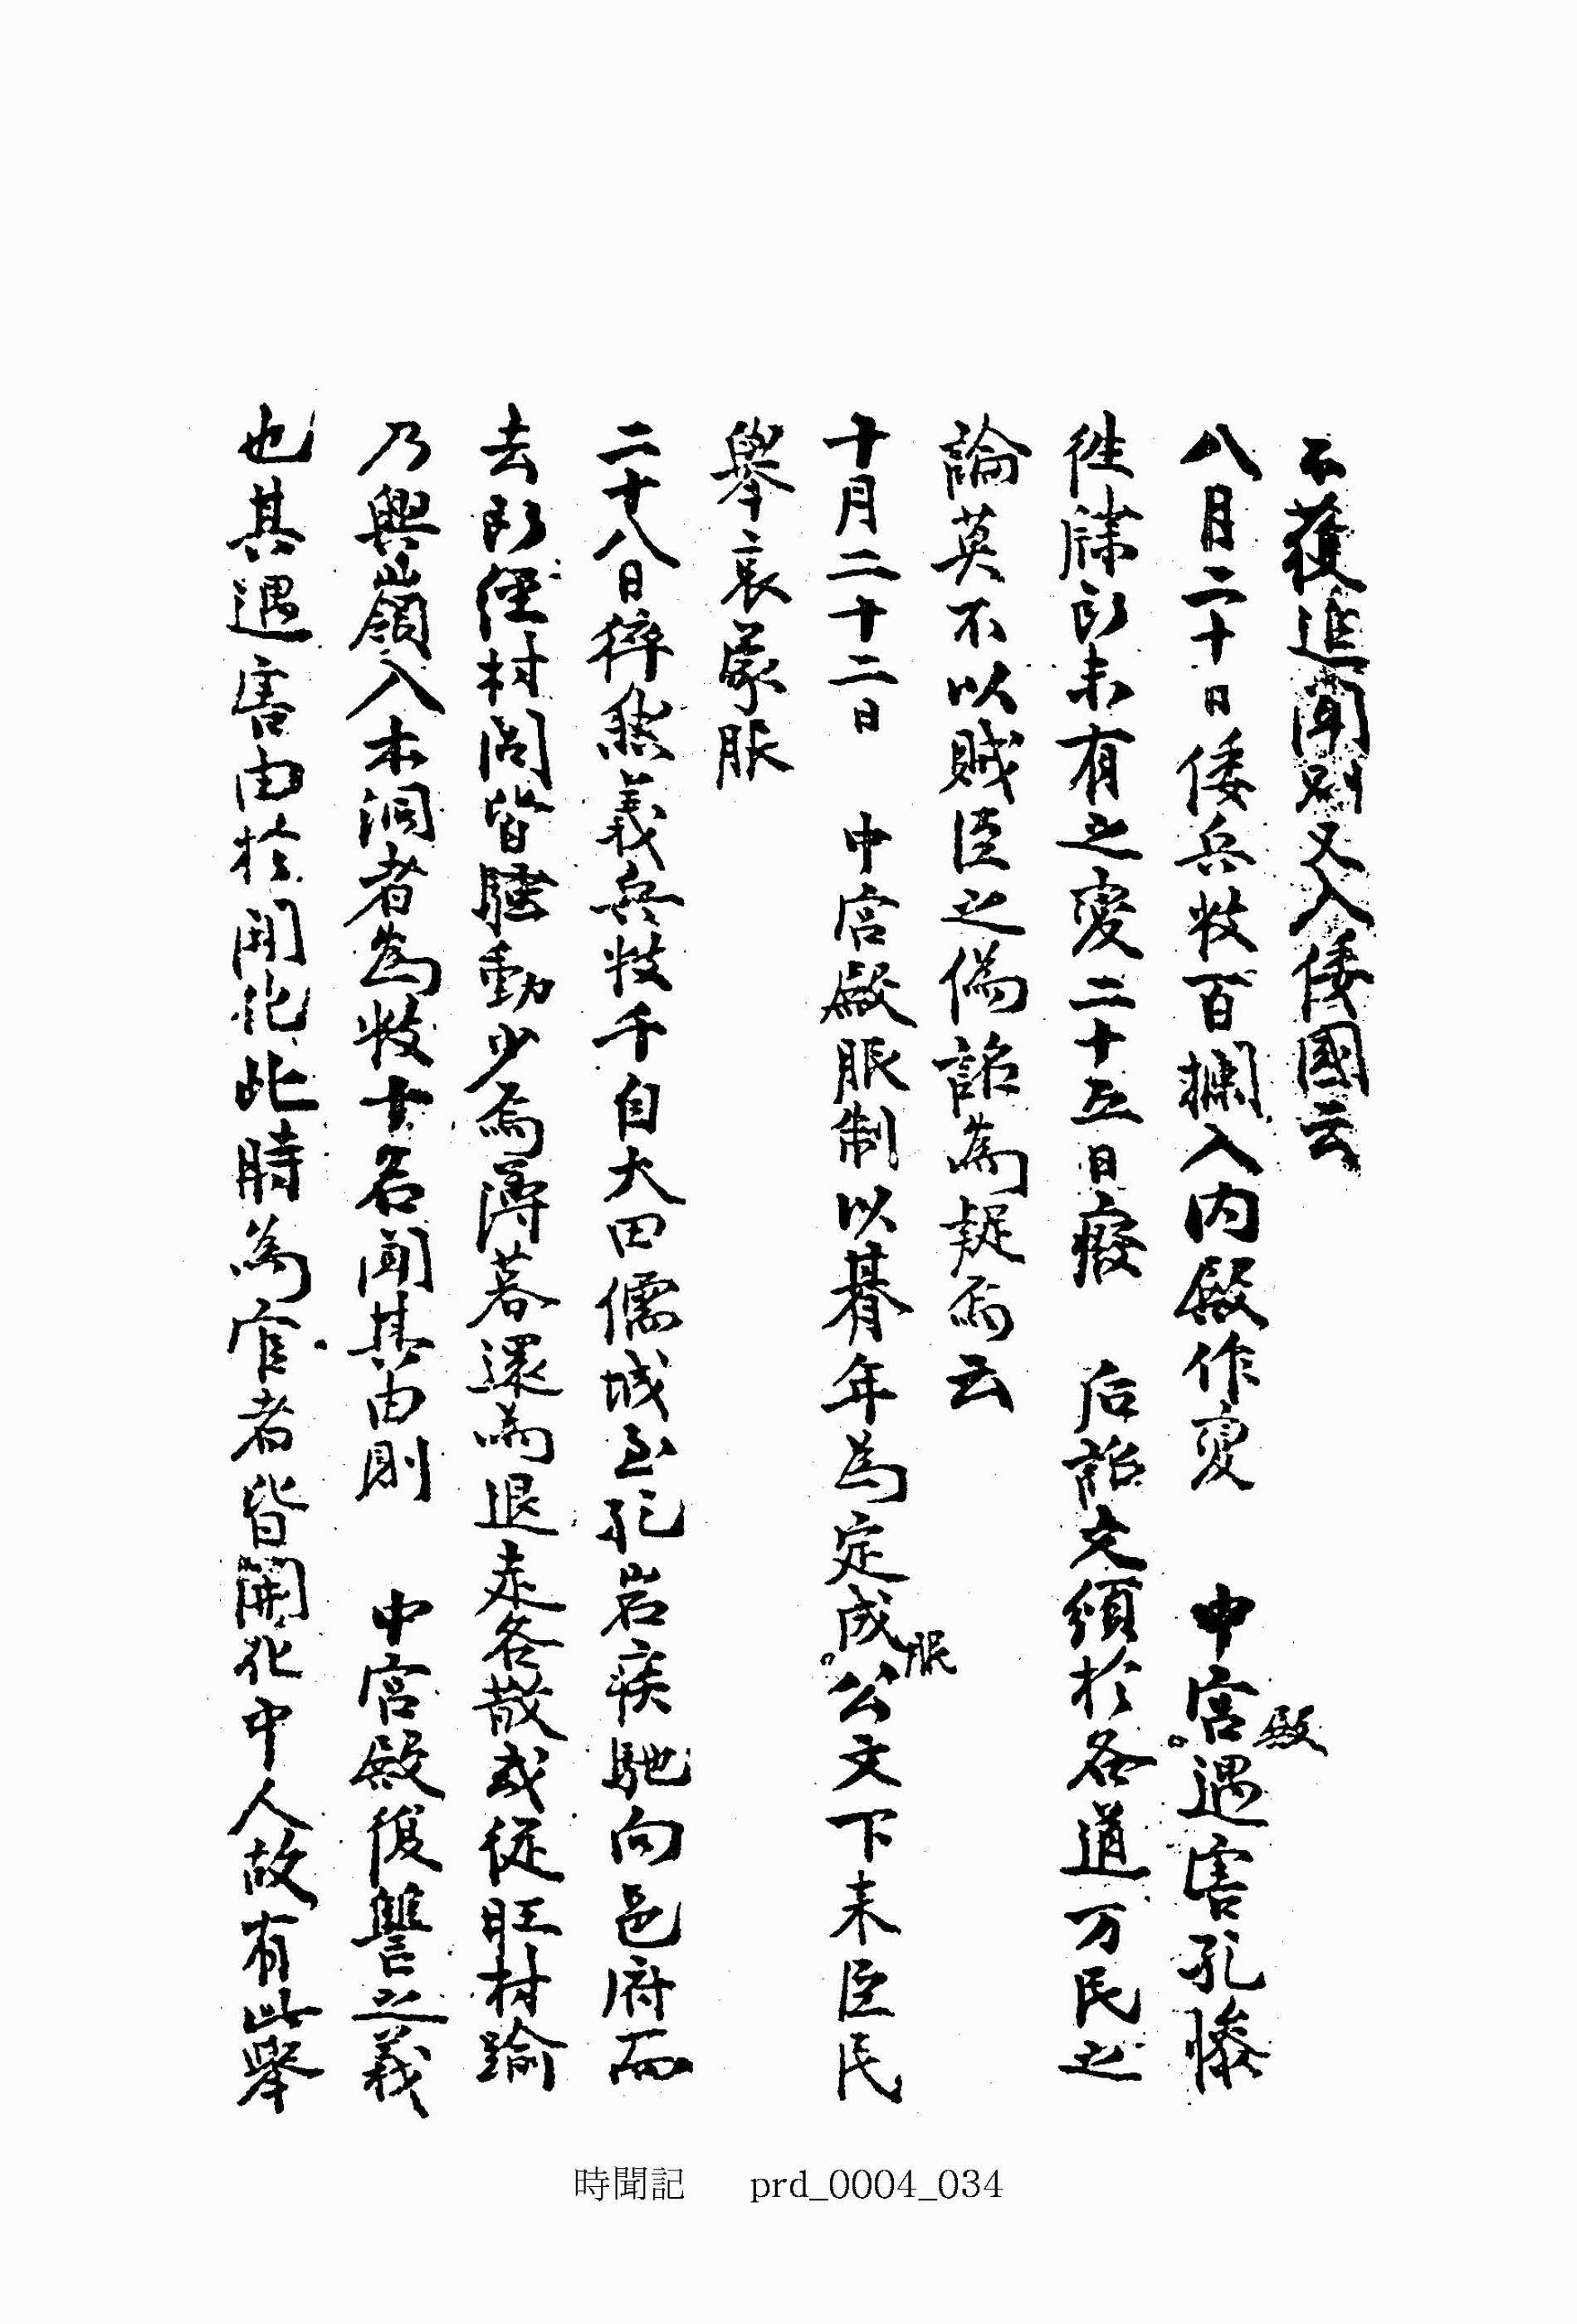 不獲進聞則又入倭國云
八月二十日倭兵数百攔入內殿作変　中宮殿遇害孔慘
徃牒所未有之變二十五日廢　后詔文頒於各道万民之
論莫不以賊臣之偽詔為疑焉云
十月二十二日　中宮殿服制以朞年為定成服公文下来臣民
舉哀蒙服
二十八日猝然義兵数千自大田儒城至孔岩疾馳向邑府而
去所経村閭皆騷動少焉薄暮還為退走各散或従旺村踰
乃興嶺入本洞者為数十名聞其由則　中宮殿復讐之義
也其遇害由於開化此時為官者皆開化中人故有此舉
時聞記 prd_0004_034